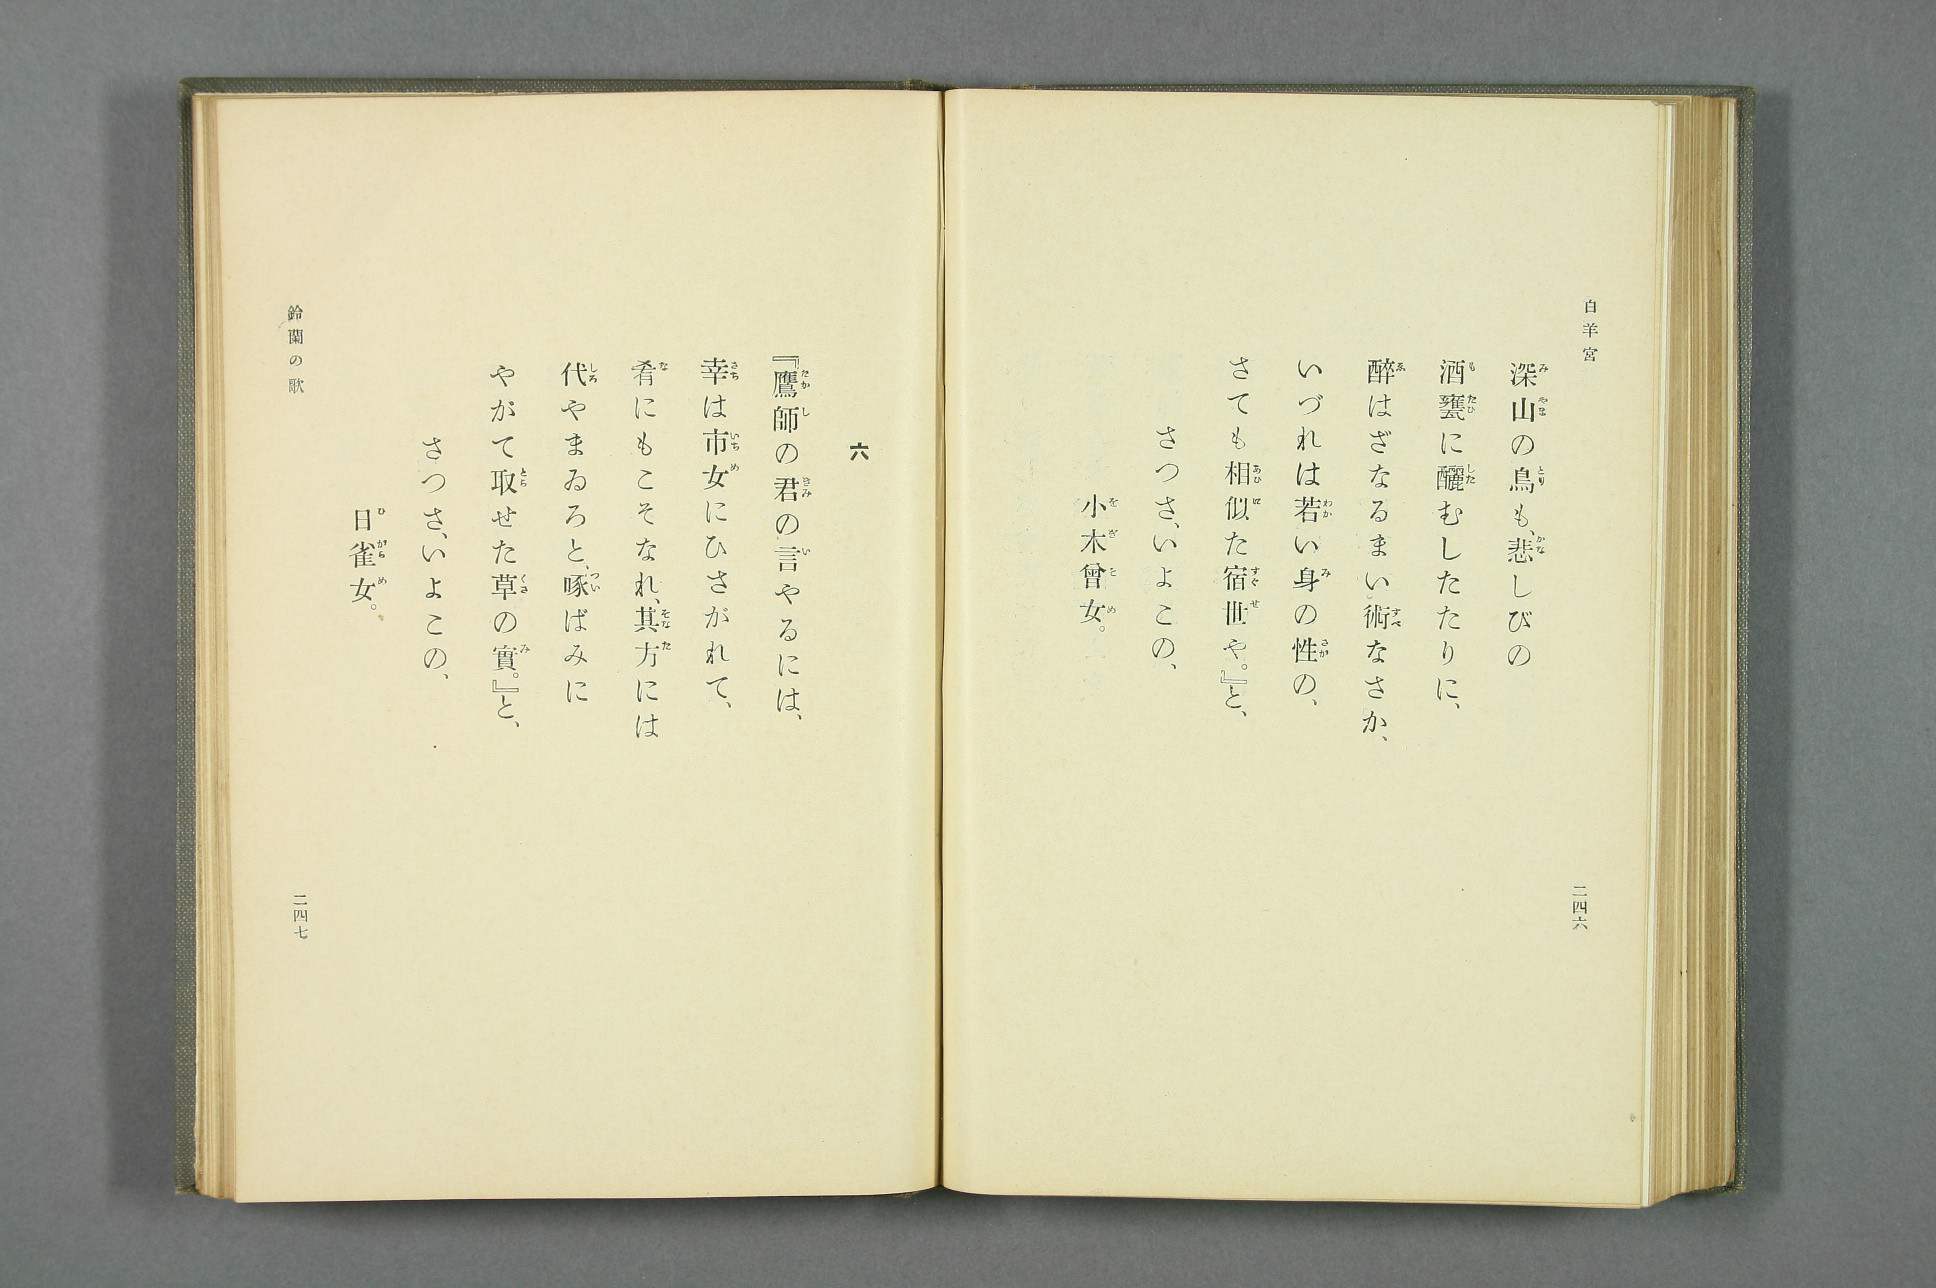 白羊宮
深山の鳥も、悲しびの
酒甕に釃むしたたりに、
醉はざなるまい術なさか、
いづれは若い身の性の、
さても相似た宿世や。』と、
さつさ、いよこの、
小木曾女。
二四六
六
『鷹師の君の言やるには、
幸は市女にひさがれて、
肴にもこそなれ、其方には
代やまゐろと、啄ばみに
やがて取せた草の實。』と、
さつさ、いよこの、
日雀女。
鈴蘭の歌
二四七